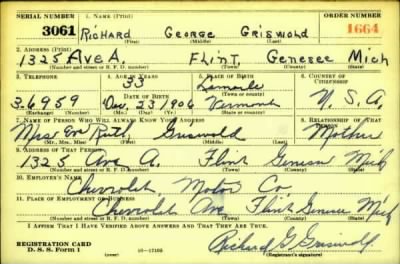 SERIAL NUMBER 1. NAME (Print) ORDER NUMBER
3061 RICHARD George GRISWOLD 1664
(First) (Middle) (Last)
2. ADDRESS (Print)
1325 Ave A. Flint Genesee Mich
(Number and street or R. F. D. number) (Town) (County) (State)
3. TELEPHONE 4. AGE IN YEARS 5. PLACE OF BIRTH 6. COUNTRY OF CITIZENSHIP
33
DATE OF BIRTH (Town or county)
3-6959 Dec, 23 1906 Vermont U. S. A.
(Exchange) (Number) (Mo.) (Day) (Yr.) (State or country)
7. NAME OF PERSON WHO WILL ALWAYS KNOW YOUR ADDRESS 8. RELATIONSHIP OF THAT PERSON
Mrs Eva Ruth Griswold Mother
(Mr., Mrs., Miss) (First) (Middle) (Last)
9. ADDRESS OF THAT PERSON
1325 Ave A. Flint Genesee Mich
(Number and street or R. F. D. number) (Town) (County) (State)
10. EMPLOYER'S NAME
Chevrolet Motor Co.
11. PLACE OF EMPLOYMENT OR BUSINESS
Chevrolet Ave Flint Genesee Mich
(Number and street or R. F. D. number) (Town) (County) (State)
I AFFIRM THAT I HAVE VERIFIED ABOVE ANSWERS AND THAT THEY ARE TRUE.
REGISTRATION CARD
D. S. S. Form 1 16—17105 Richard G Griswold
(Registrant's signature)